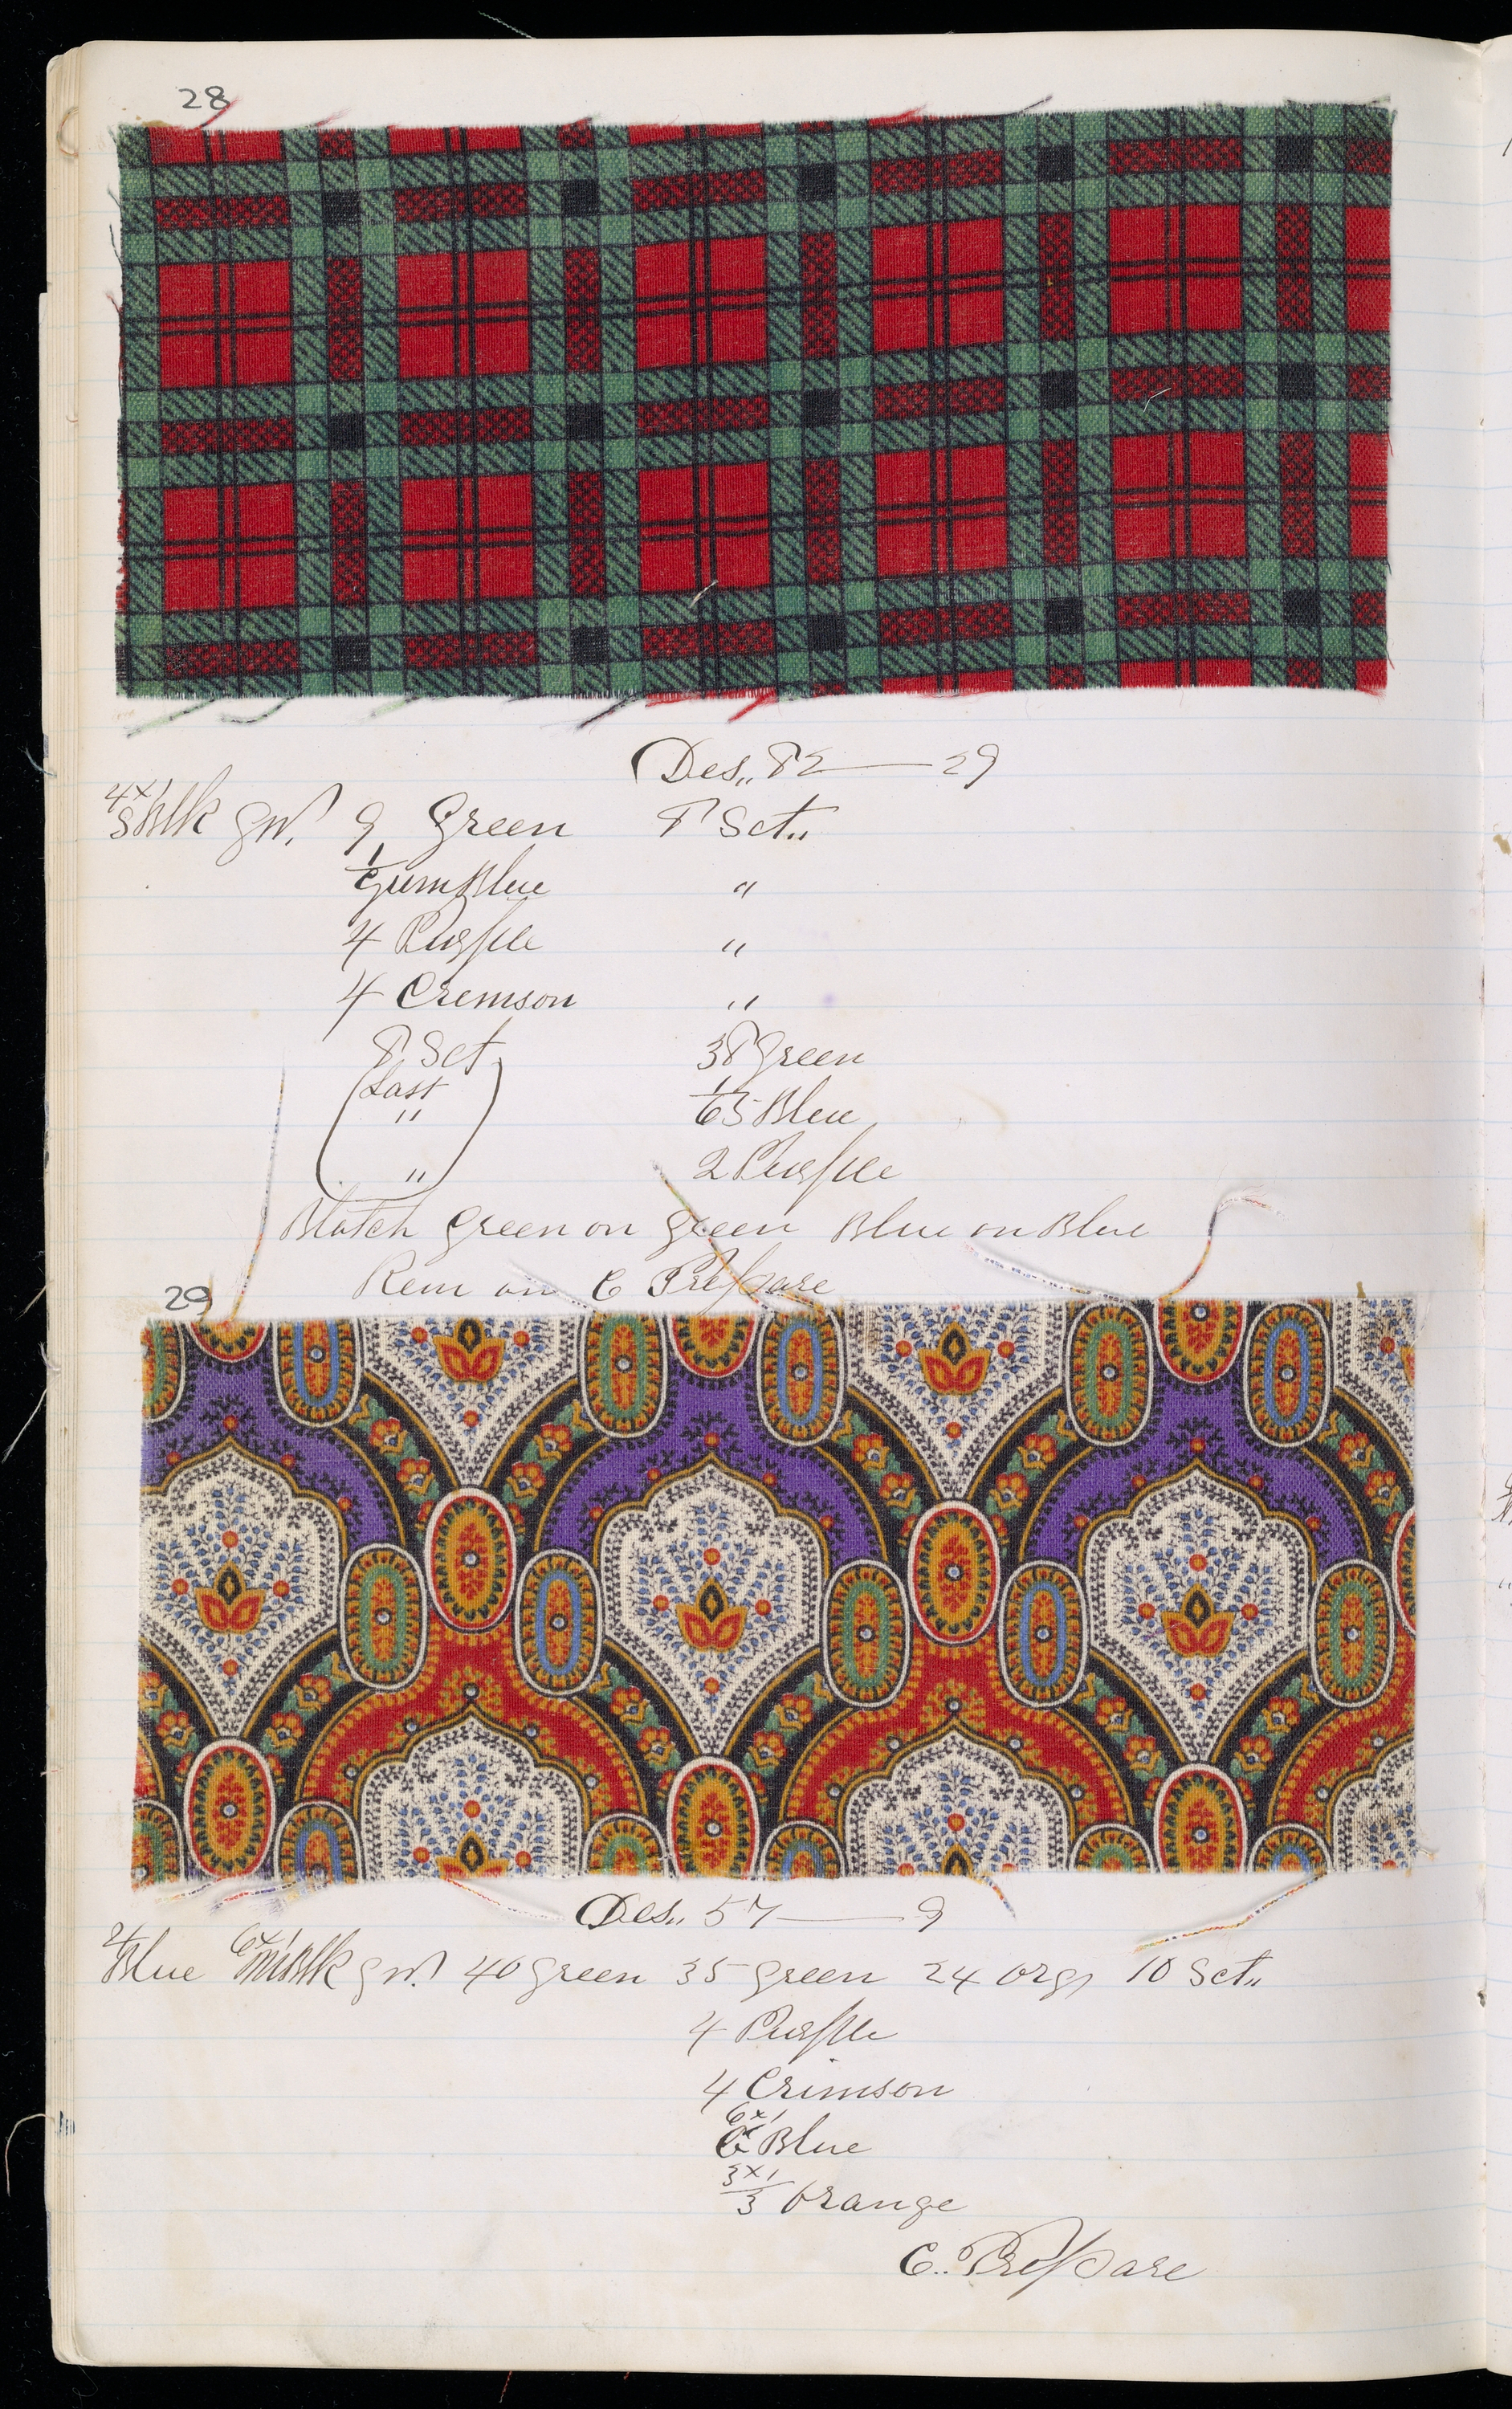 28
Des,, 82 — 29
4x1/8 Blk gw. 9 Green 8 Sct,,
1/C Gum Blue "
4 Purple "
4 Cremson "
8 Sct 38 Green
(Last " 1/65 Blue
" ) 2 Purple
Blotch Green on green Blue on Blue
Rem on C Prepare
29
Des,, 57 — 9
Blue Blk gw. 40 green 35 green 24 org 10 Sct,,
4 Purple
4 Crimson
6x1/C Blue
3x1/3 Orange
C.. Prepare